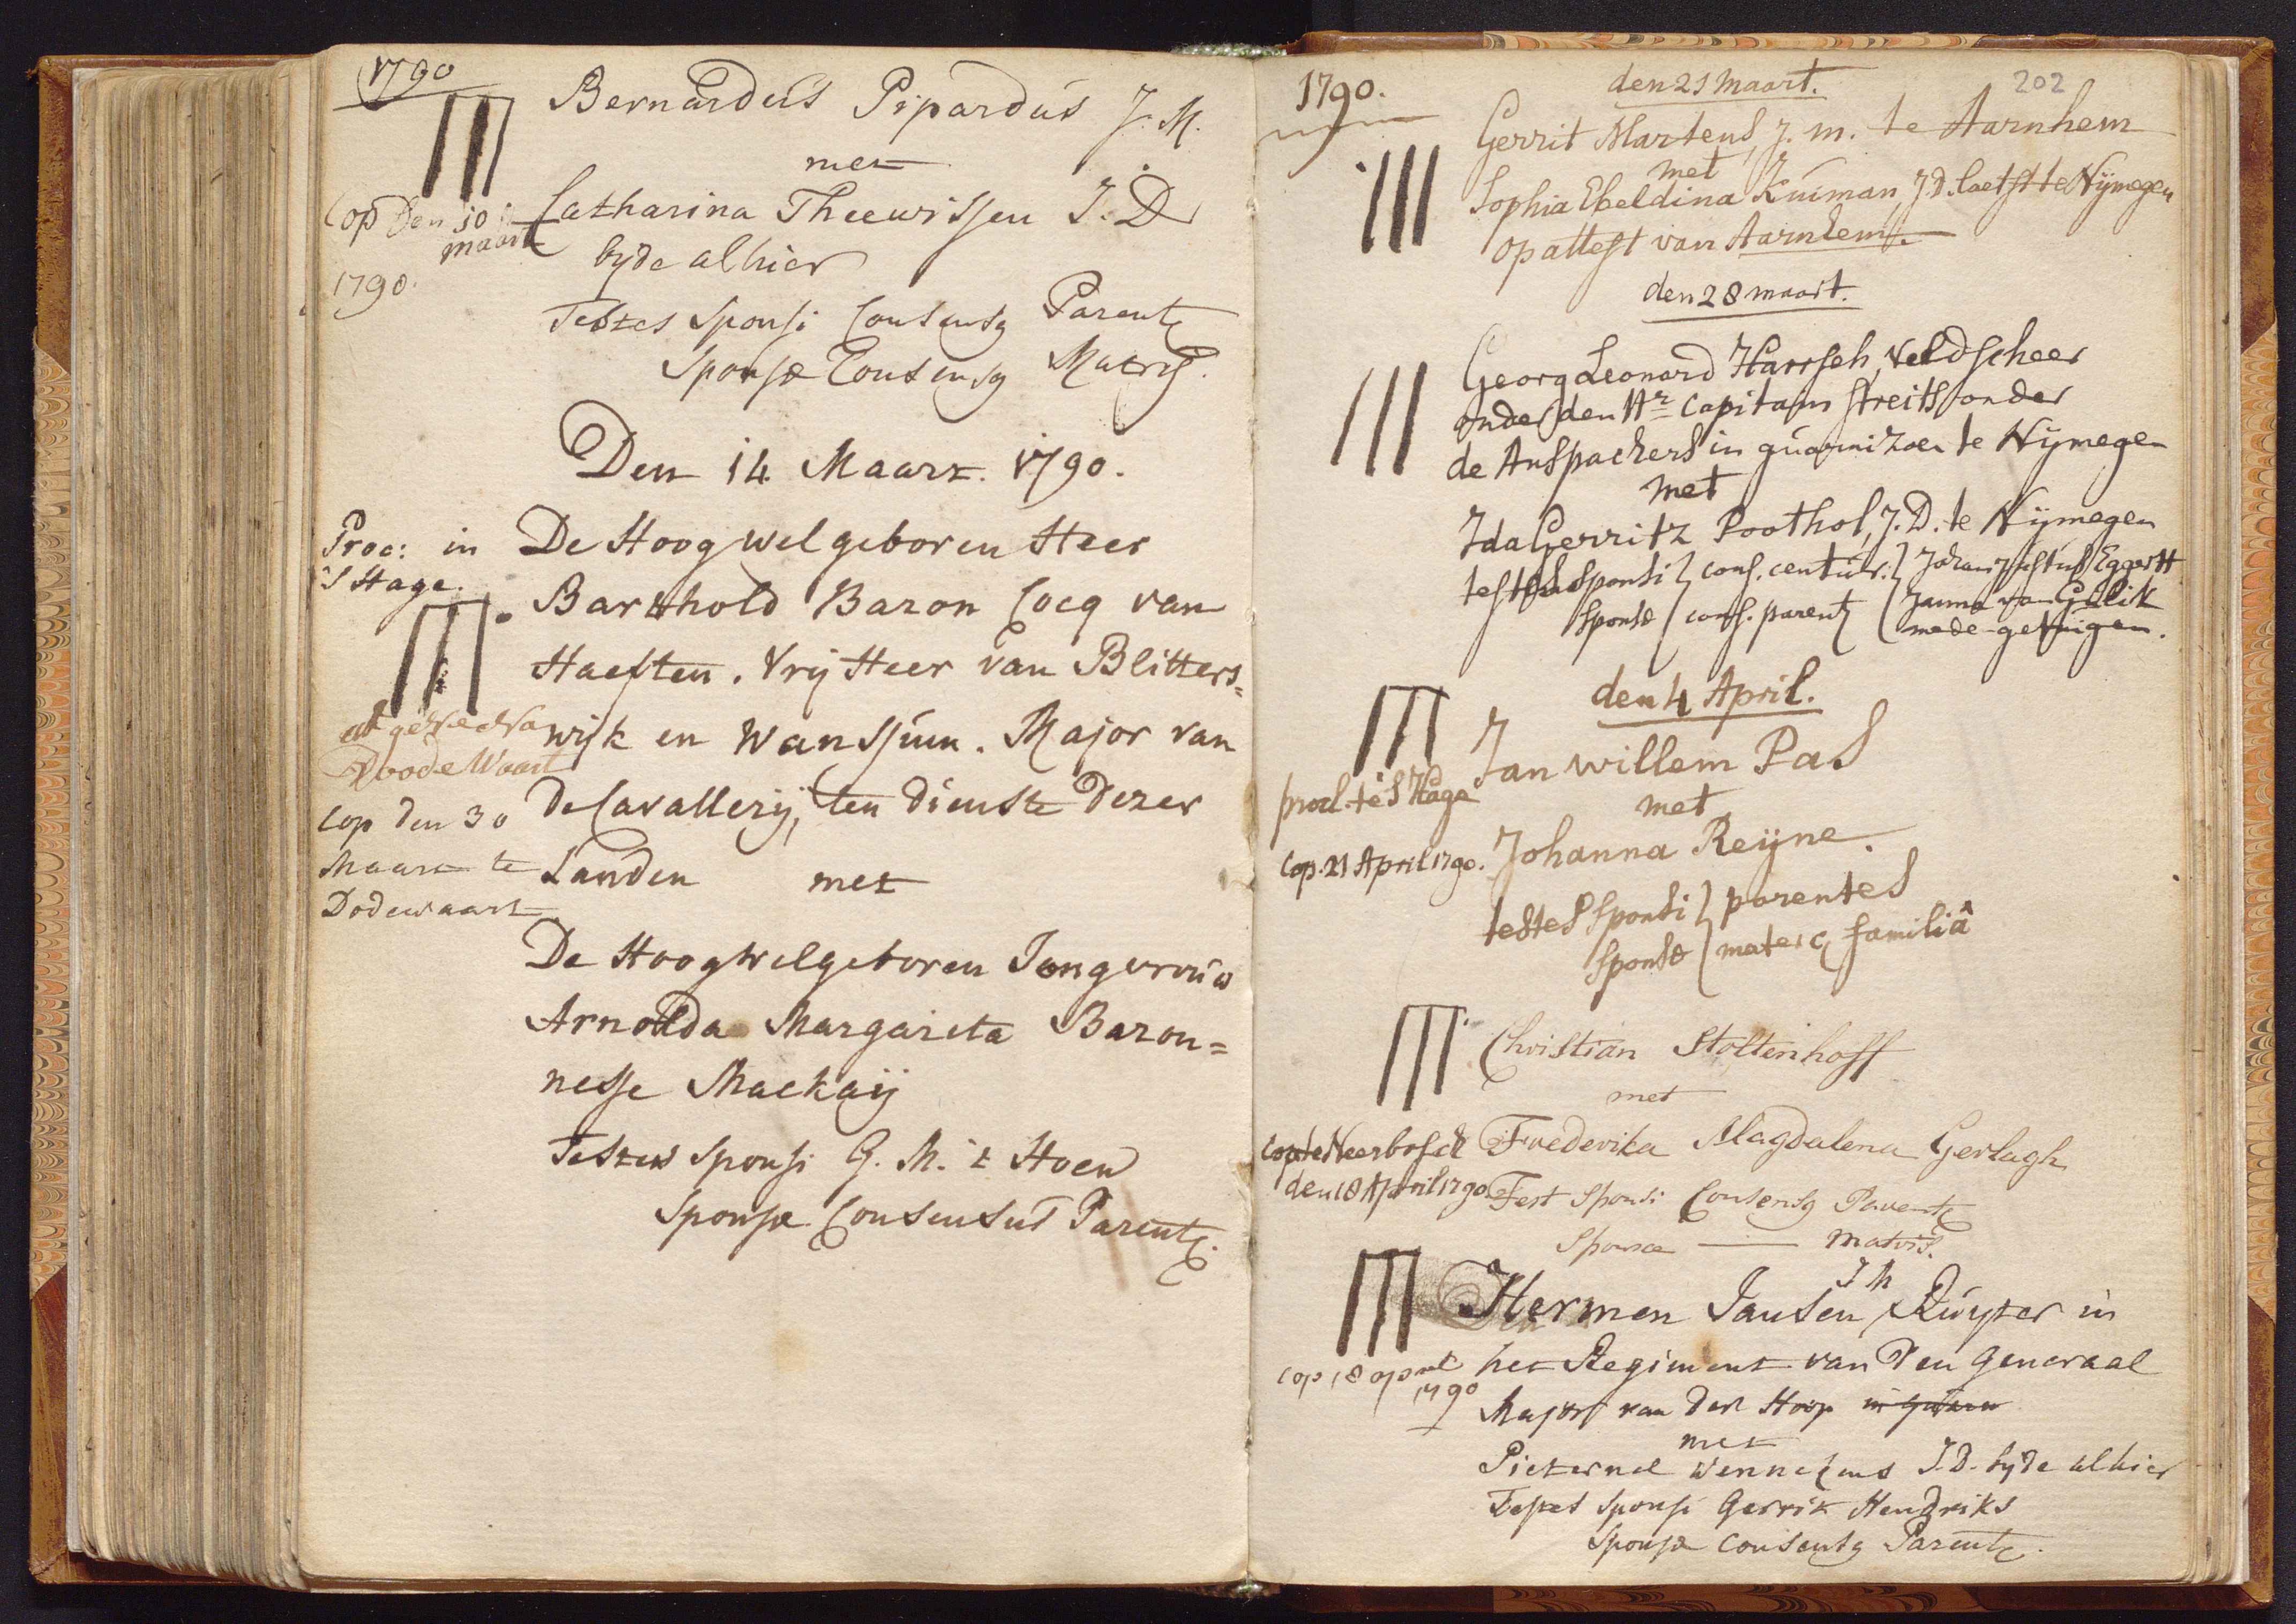 1790
Bernardus Pipardus J. M.
met
Cop Den 10
maart
1790.
Catharina Theewissen J. D
byde alhier
Testes Sponsi Consensq Parentq
Sponsæ Consensq Matris.
Den 14. Maart. 1790.
Proc: in
's Hage.
De Hoog Welgeboren Heer
Barthold Baron Cocq van
Haeften. Vrij Heer van Blitters=
wijk en Wanssum. Major van
de Cavallerij, ten dienste dezer
Landen met
Doode Waart
Cop den 30
Maart te
Dodewaart
De Hoogwelgeboren Jongvrouw
Arnolda Margareta Baron=
nesse Mackaij
Testes Sponsi G. M. 't Hoen
Sponsæ Consensus Parentq.
1790.
202
den 21 maart.
Gerrit Martens, J. m. te Aarnhem
met
Sophia Ebeldina Kuiman, J D. laetst te Nijmegen
op attest van Aarnhem.
den 28 maart.
Georg Leonard Harrseh, veldscheer
onder den Hr Capitain Streits onder
de Anspachers in guarnizoen te Nijmegen
met
Ida Gerritz Poothol, J. D. te Nijmegen
testes Sponsi } cons. centur. } Johan Justus Eggertt
Sponsæ } cons. parentq { Janna van Gulik
mede-getuigen.
den 4 April.
Jan willem Pas
procl. te S Hage
met
Cop. 21 April 1790.
Johanna Reijne.
testes Sponsi } parentes
Sponsæ { mater q familiâ
Christian Stoltenhoff
met
Cop te Neerbosch
den 18 April 1790
Frederika Magdalena Gerlagh
Test Sponsi Consensq Parentq
Sponsæ — matris.
J M
Hermen Jansen Ruyter in
cop 18 april
1790
het Regiment van den Generaal
Major van der Hoop in
met
Pieternel Wennekens J. D. byde alhier
Testes Sponsi Gerrit Hendriks
Sponsæ Consensq Parentq.